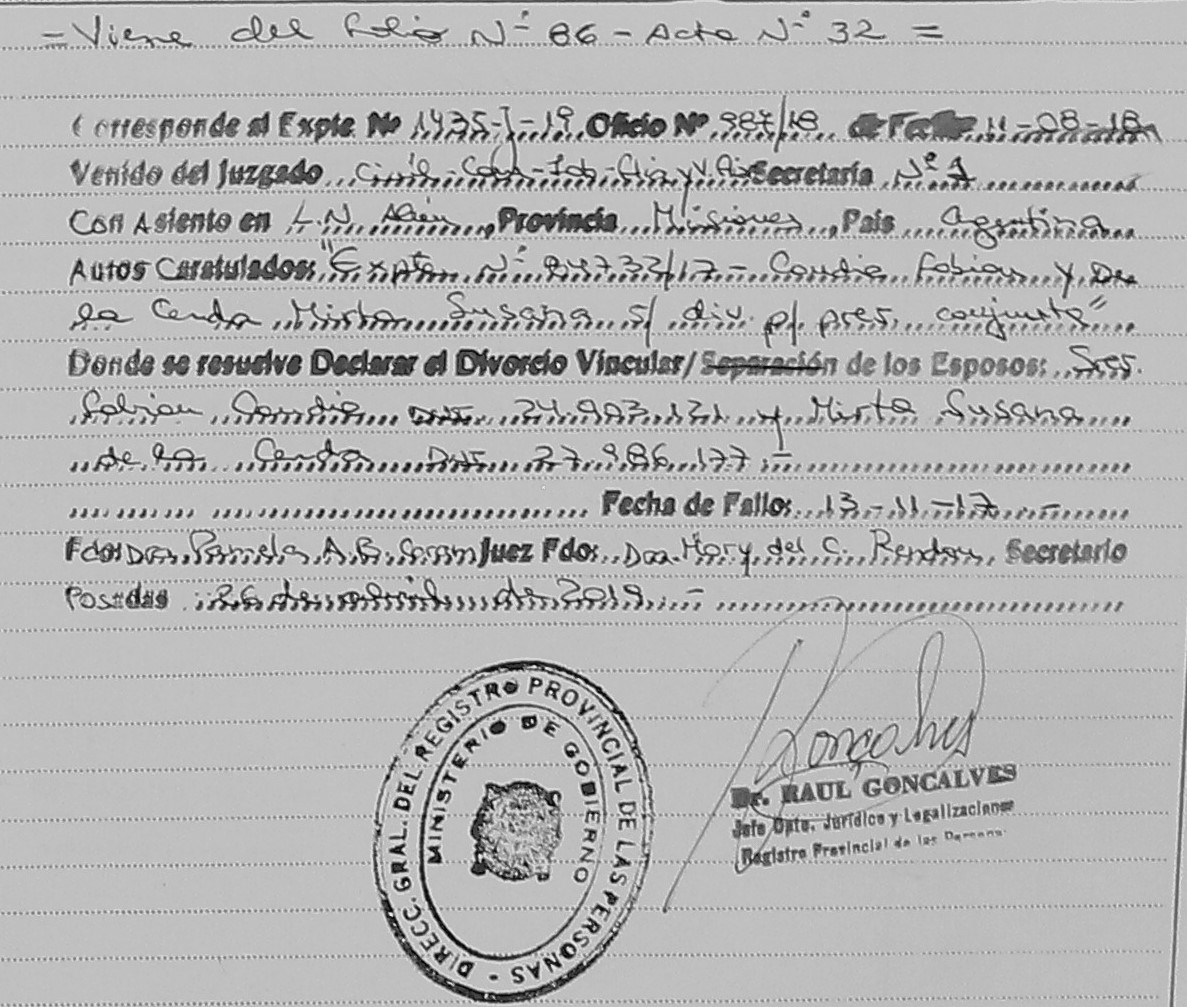 = Viene del folio Nº 86 - Acta Nº 32 =
Corresponde al Expte. Nº 1435-J-19 Oficio Nº 987/18 de Fecha 11-08-18
Venido del Juzgado Civil-Com-Lab- y Secretaría Nº 1
Con Asiento en L.N. Alem Provincia Misiones País Argentina
Autos Caratulados: "Expte. Nº 94733/17 - Candia Fabian y De
la Cerda Mirta Susana s/ div. p/ pres. conjunta"
Donde se resuelve Declarar el Divorcio Vincular/Separación de los Esposos: Sres.
Fabian Candia DNI. 24.903.131 y Mirta Susana
de la Cerda DNI 27.986.177.-
Fecha de Fallo: 13-11-17.-
Fdo: Dra. Pamela A.B. Juez Fdo: Dra. Mary del C. Rendon, Secretario
Posadas 26 de abril de 2019.-
DIRECC. GRAL. DEL REGISTRO PROVINCIAL DE LAS PERSONAS -
MINISTERIO DE GOBIERNO
Goncalves
Dr. RAUL GONCALVES
Jefe Dpto. Jurídico y Legalizaciones
Registro Provincial de las Personas